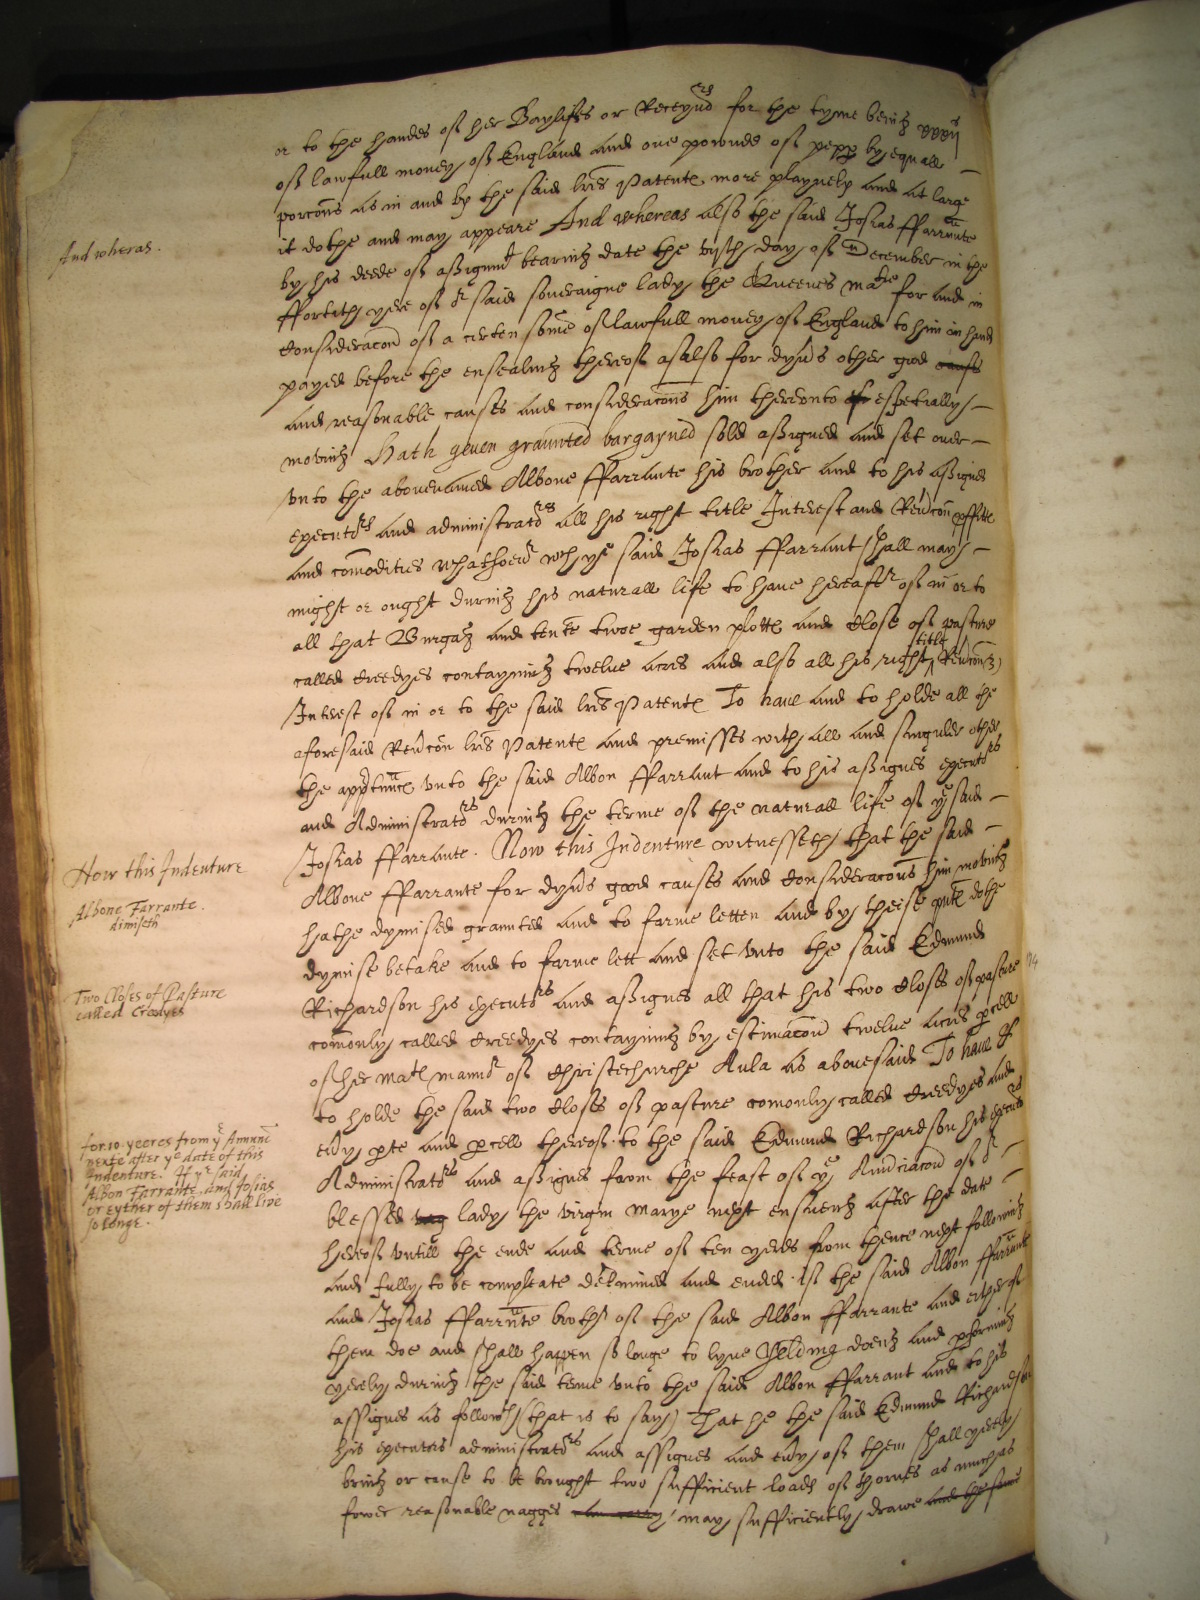 or to the handes of her Baylifes or Receyurs for the tyme beinge xxxijs
of lawfull money of England and one pownde of pepp by equall
porcons as in and by the said lres Patente more playnely and at large
it dothe and may appeare And whereas also the said Josias ffarrante
And wheras.
by his deede of assignmt bearinge date the vijth day of December in the
ffortith yere of or said soueraigne lady the Queenes matie for and in
consideracon of a certen some of lawfull money of England to him in hand
payed before the ensealinge thereof as also for dyuers other good cause
and reasonable causes and consideracons him therevnto espetially
movinge Hath geven graunted bargayned sold assigned and set ouer
vnto the abouenamed Albone ffarrante his brother and to his assignes
executors and administrators all his right title Interest and Reucon pffitte
and comodities whatsoeur wch ye said Josias ffarrant shall may
might or ought duringe his naturall life to haue hereaftr of in or to
all that Burgage and tente twoe garden plotte and close of pasture
called creedyes contayninge twelue acres and also all his right title Reucon
Interest of in or to the said lres Patente To haue and to holde all the
aforesaid Reucon lres Patente and premisses with all and singuler other
the apptunce vnto the said Albon ffarrant and to his assignes executors
and Administrators duringe the terme of the naturall life of ye said
Josias ffarrante. Now this Indenture witnesseth that the said
How this Indenture
Albone ffarrante for dyuers good causes and consideracons him movinge
Albone Farrante.
dimiseth
hathe dymised graunted and to farme letten and by theise pnte dothe
dymise betake and to farme lett and set vnto the said Edmund
Richardson his executors and assignes all that his two closes of pasture
Two Closes of Pasture
called Creedyes
comonly called creedyes contayninge by estimacon twelue acres pcell
of her mate mannor of christechurche Aula as abouesaid To haue &
to holde the said two closes of pasture comonly called creedyes and
eury pte and pcell thereof to the said Edmund Richardson his executors
for 10 yeeres from ye Annunc
nexte after ye date of this
Indenture. If ye said
Albon Farrante and Josias
or eyther of them shall live
so longe.
Administrators and assignes from the feast of ye Annciacon of or
blessed lady the virgin Marye next ensuenge after the date
hereof vntill the ende and terme of ten yeres from thence next followinge
and fully to be compleate detrmined and ended if the said Albon ffarrante
and Josias ffarrnte brothr of the said Albon ffarrante and either of
them doe and shall happen so longe to lyue Yelding doenge and pforminge
yerely duringe the said terme vnto the said Albon ffarrant and to his
assignes as followth (that is to say) That he the said Edmund Richardson
his executors administrators and assignes and eury of them shall yerely
bringe or cause to be brought two sufficient loads of thornes as much as
fower reasonable nagges may sufficiently drawe and the same